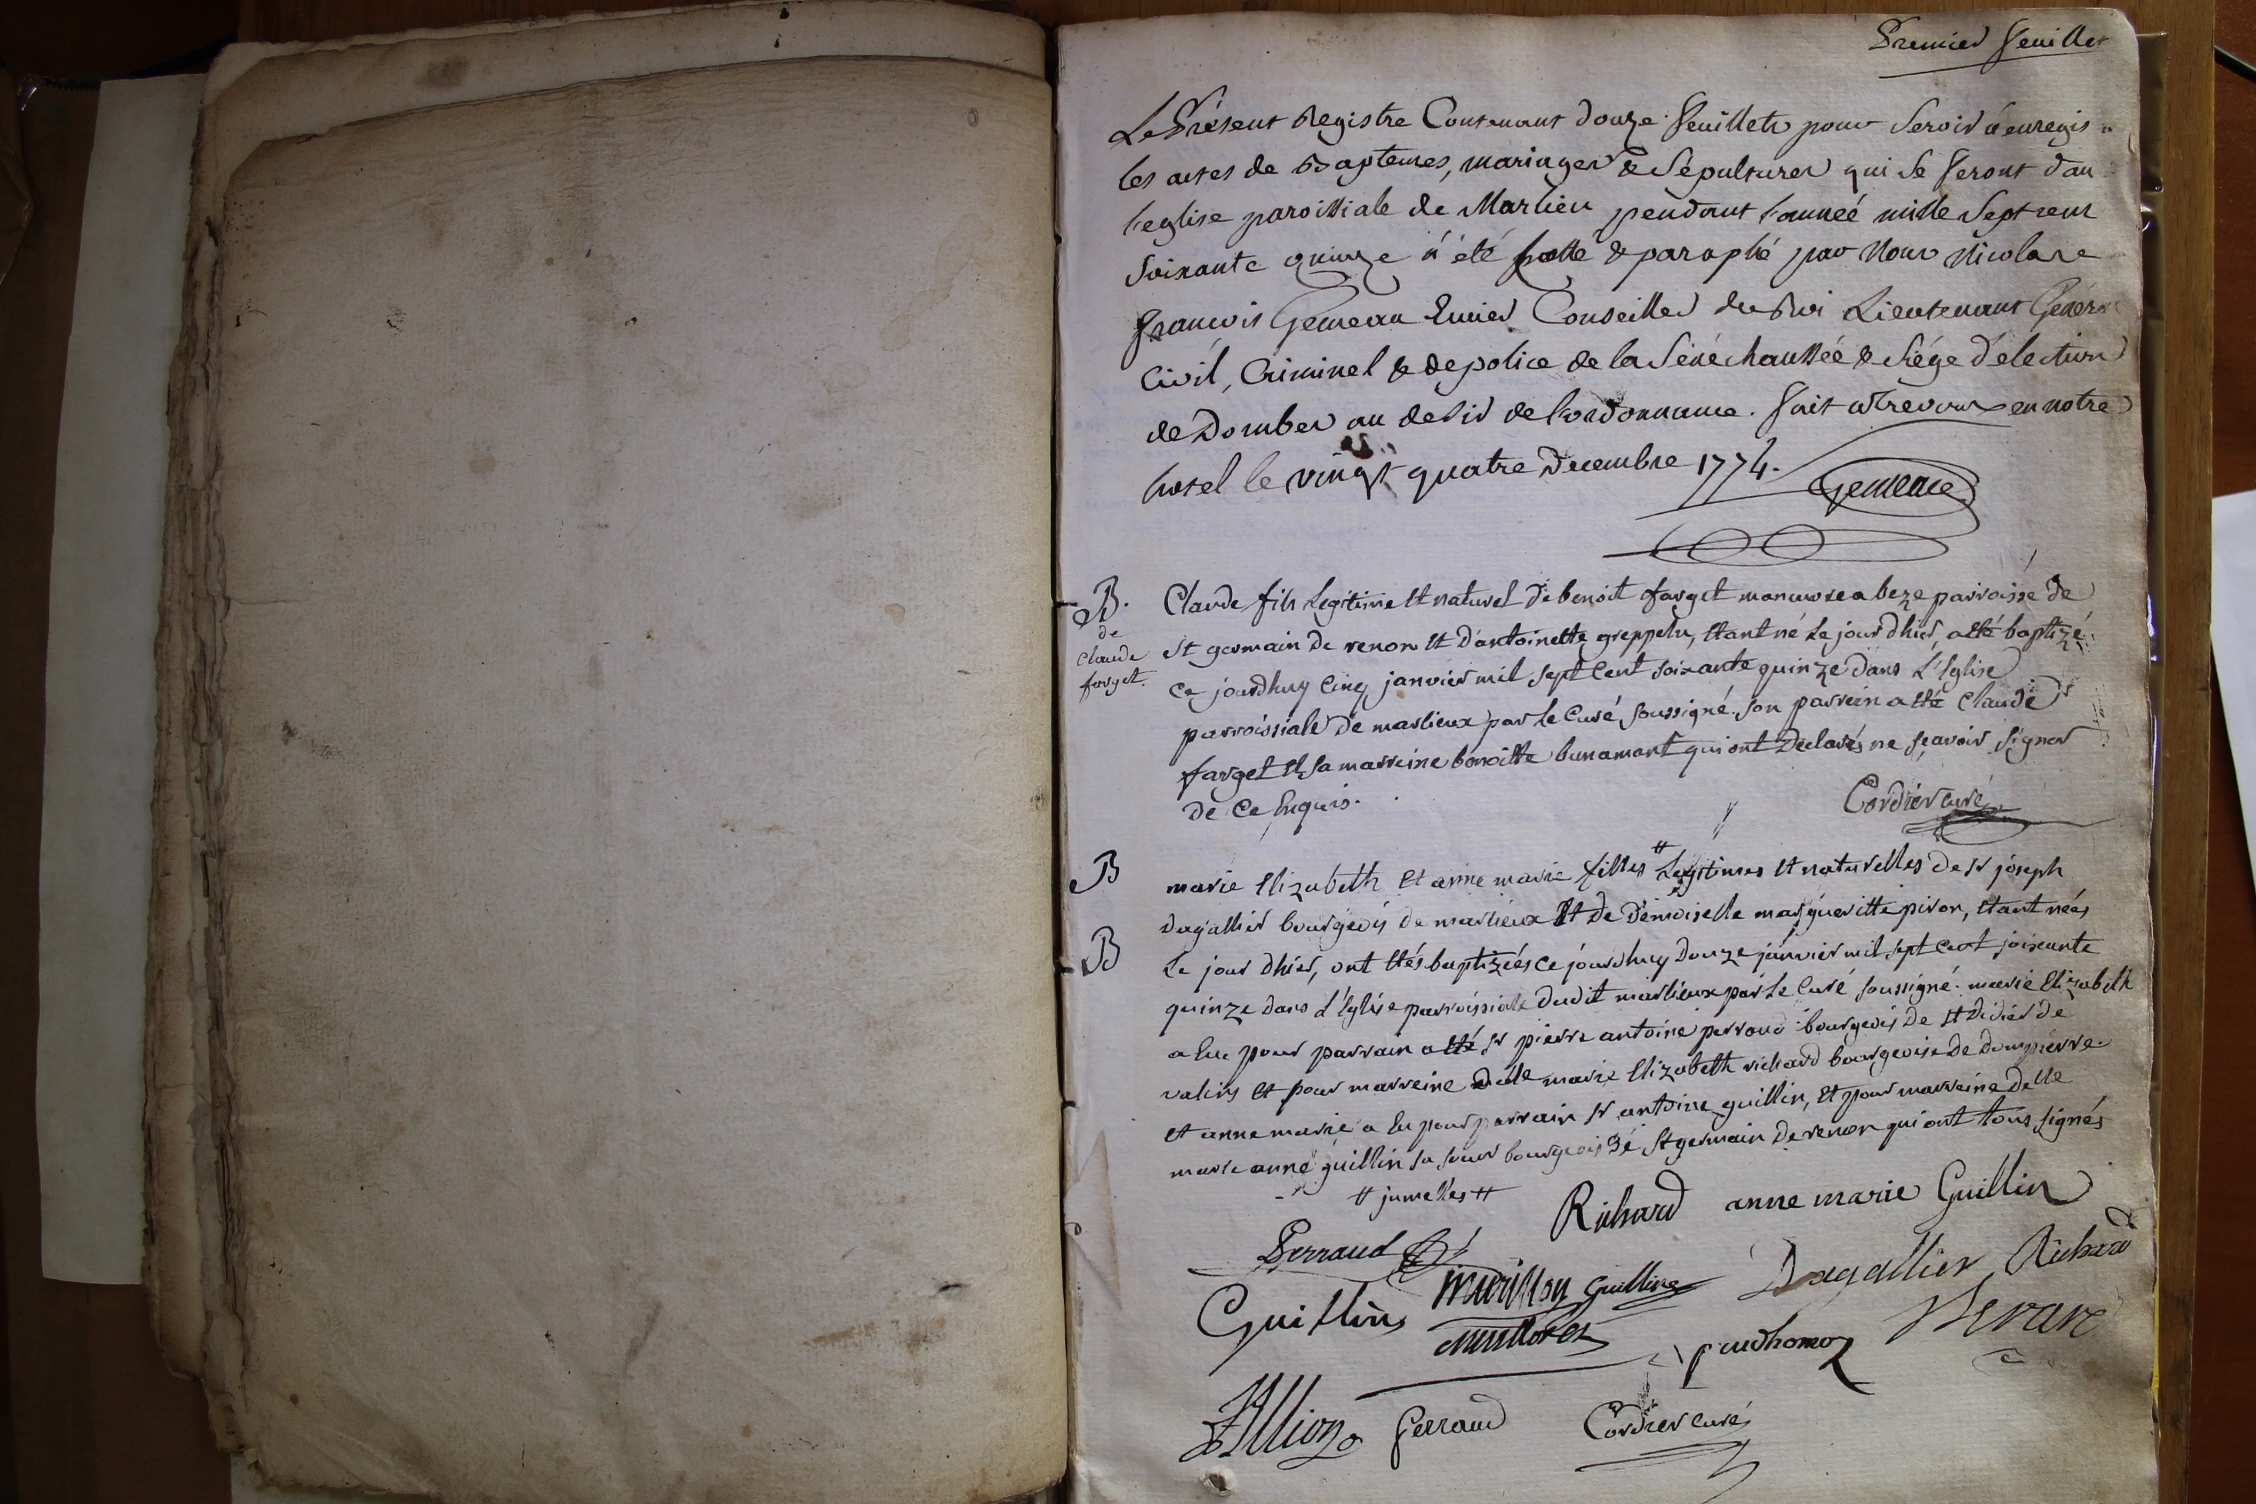 Premier feuillet
Le Présent Registre Contenant douze feuillets pour Servir à enregis
les actes de Baptemes, mariages & Sépultures qui se feront dan
l'eglise paroissiale de Marlieu pendant l'anneé mille Sept cent
Soixante quinze á été Cotté & paraphé par Nous Nicolas
françois Gemeau Ecuier Conseiller du Roi Lieutenant Généra
Civil, Criminel & de police de la Sénéchaussée & Siége d'élection
de Dombes au desir de l'ordonnance. fait a Trevoux en notre
hotel le vingt quatre Decembre 1774.
Gemeau
B.
de
Claude
farget.
Claude fils Legitime Et naturel de benoit farget manuvre a beze parroisse de
St germain de renon Et d'antoinette greppelu, Etant né Le jour d'hier, a Eté baptizé
Ce jourdhuy Cinq janvier mil sept Cent soixante quinze dans L'Eglise
parroissiale de marlieux par le Curé soussigné. son parrein a Eté Claude
farget Et sa marreine benoitte bunamant qui ont Declarés ne sçavoir signer
de Ce Enquis.
Cordier curé
B
B
marie Elizabeth Et anne marie filles # Legitimes Et naturelles de Sr joseph
Dagallier bourgeois de marlieux Et de Demoiselle margueritte piron, Etant neés
Le jour dhier, ont Etés baptizeés Ce jourdhuy Douze janvier mil sept Cent soixante
quinze dans L'Eglise parroissiale dudit marlieux par Le Curé soussigné. marie Elizabeth
a Eu pour parrain a Eté Sr pierre antoine perroud bourgeois de St didier de
valins Et pour marreine delle marie Elizabeth richard bourgeoise de dompierre
Et anne marie a Eu pour parrain Sr antoine guillin, Et pour marreine delle
marie anne guillin sa soeur bourgeois de St germain de renon qui ont tous signés
# jumelles #
Richard anne marie Guillin
Perraud
Guillin Guillin Dagallier Richard
prudhome
Perraud Cordier curé